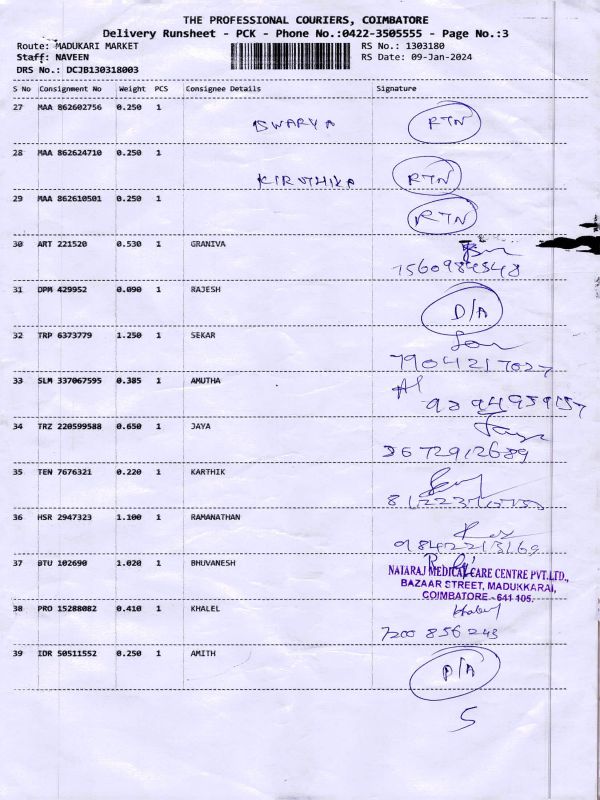 THE PROFESSIONAL COURIERS, COIMBATORE
Delivery Runsheet - PCK - Phone No.:0422-3505555 - Page No.:3
Route: MADUKARI MARKET RS No.: 1303180
Staff: NAVEEN RS Date: 09-Jan-2024
DRS No.: DCJB130318003
S No Consignment No Weight PCS Consignee Details Signature
27 MAA 862602756 0.250 1
ISWARYA RTN
28 MAA 862624710 0.250 1
KIRUTHIKA RTN
29 MAA 862610501 0.250 1
RTN
30 ART 221520 0.530 1 GRANIVA
31 DPM 429952 0.090 1 RAJESH
D/A
32 TRP 6373779 1.250 1 SEKAR
7904217027
33 SLM 337067595 0.385 1 AMUTHA
34 TRZ 220599588 0.650 1 JAYA
35 TEN 7676321 0.220 1 KARTHIK
36 HSR 2947323 1.100 1 RAMANATHAN
37 BTU 102690 1.020 1 BHUVANESH
NATARAJ MEDICAL CARE CENTRE PVT.LTD.,
BAZAAR STREET, MADUKKARAI,
COIMBATORE - 641 105.
38 PRO 15288082 0.410 1 KHALEL
7200 856 243
39 IDR 50511552 0.250 1 AMITH
D/A
5